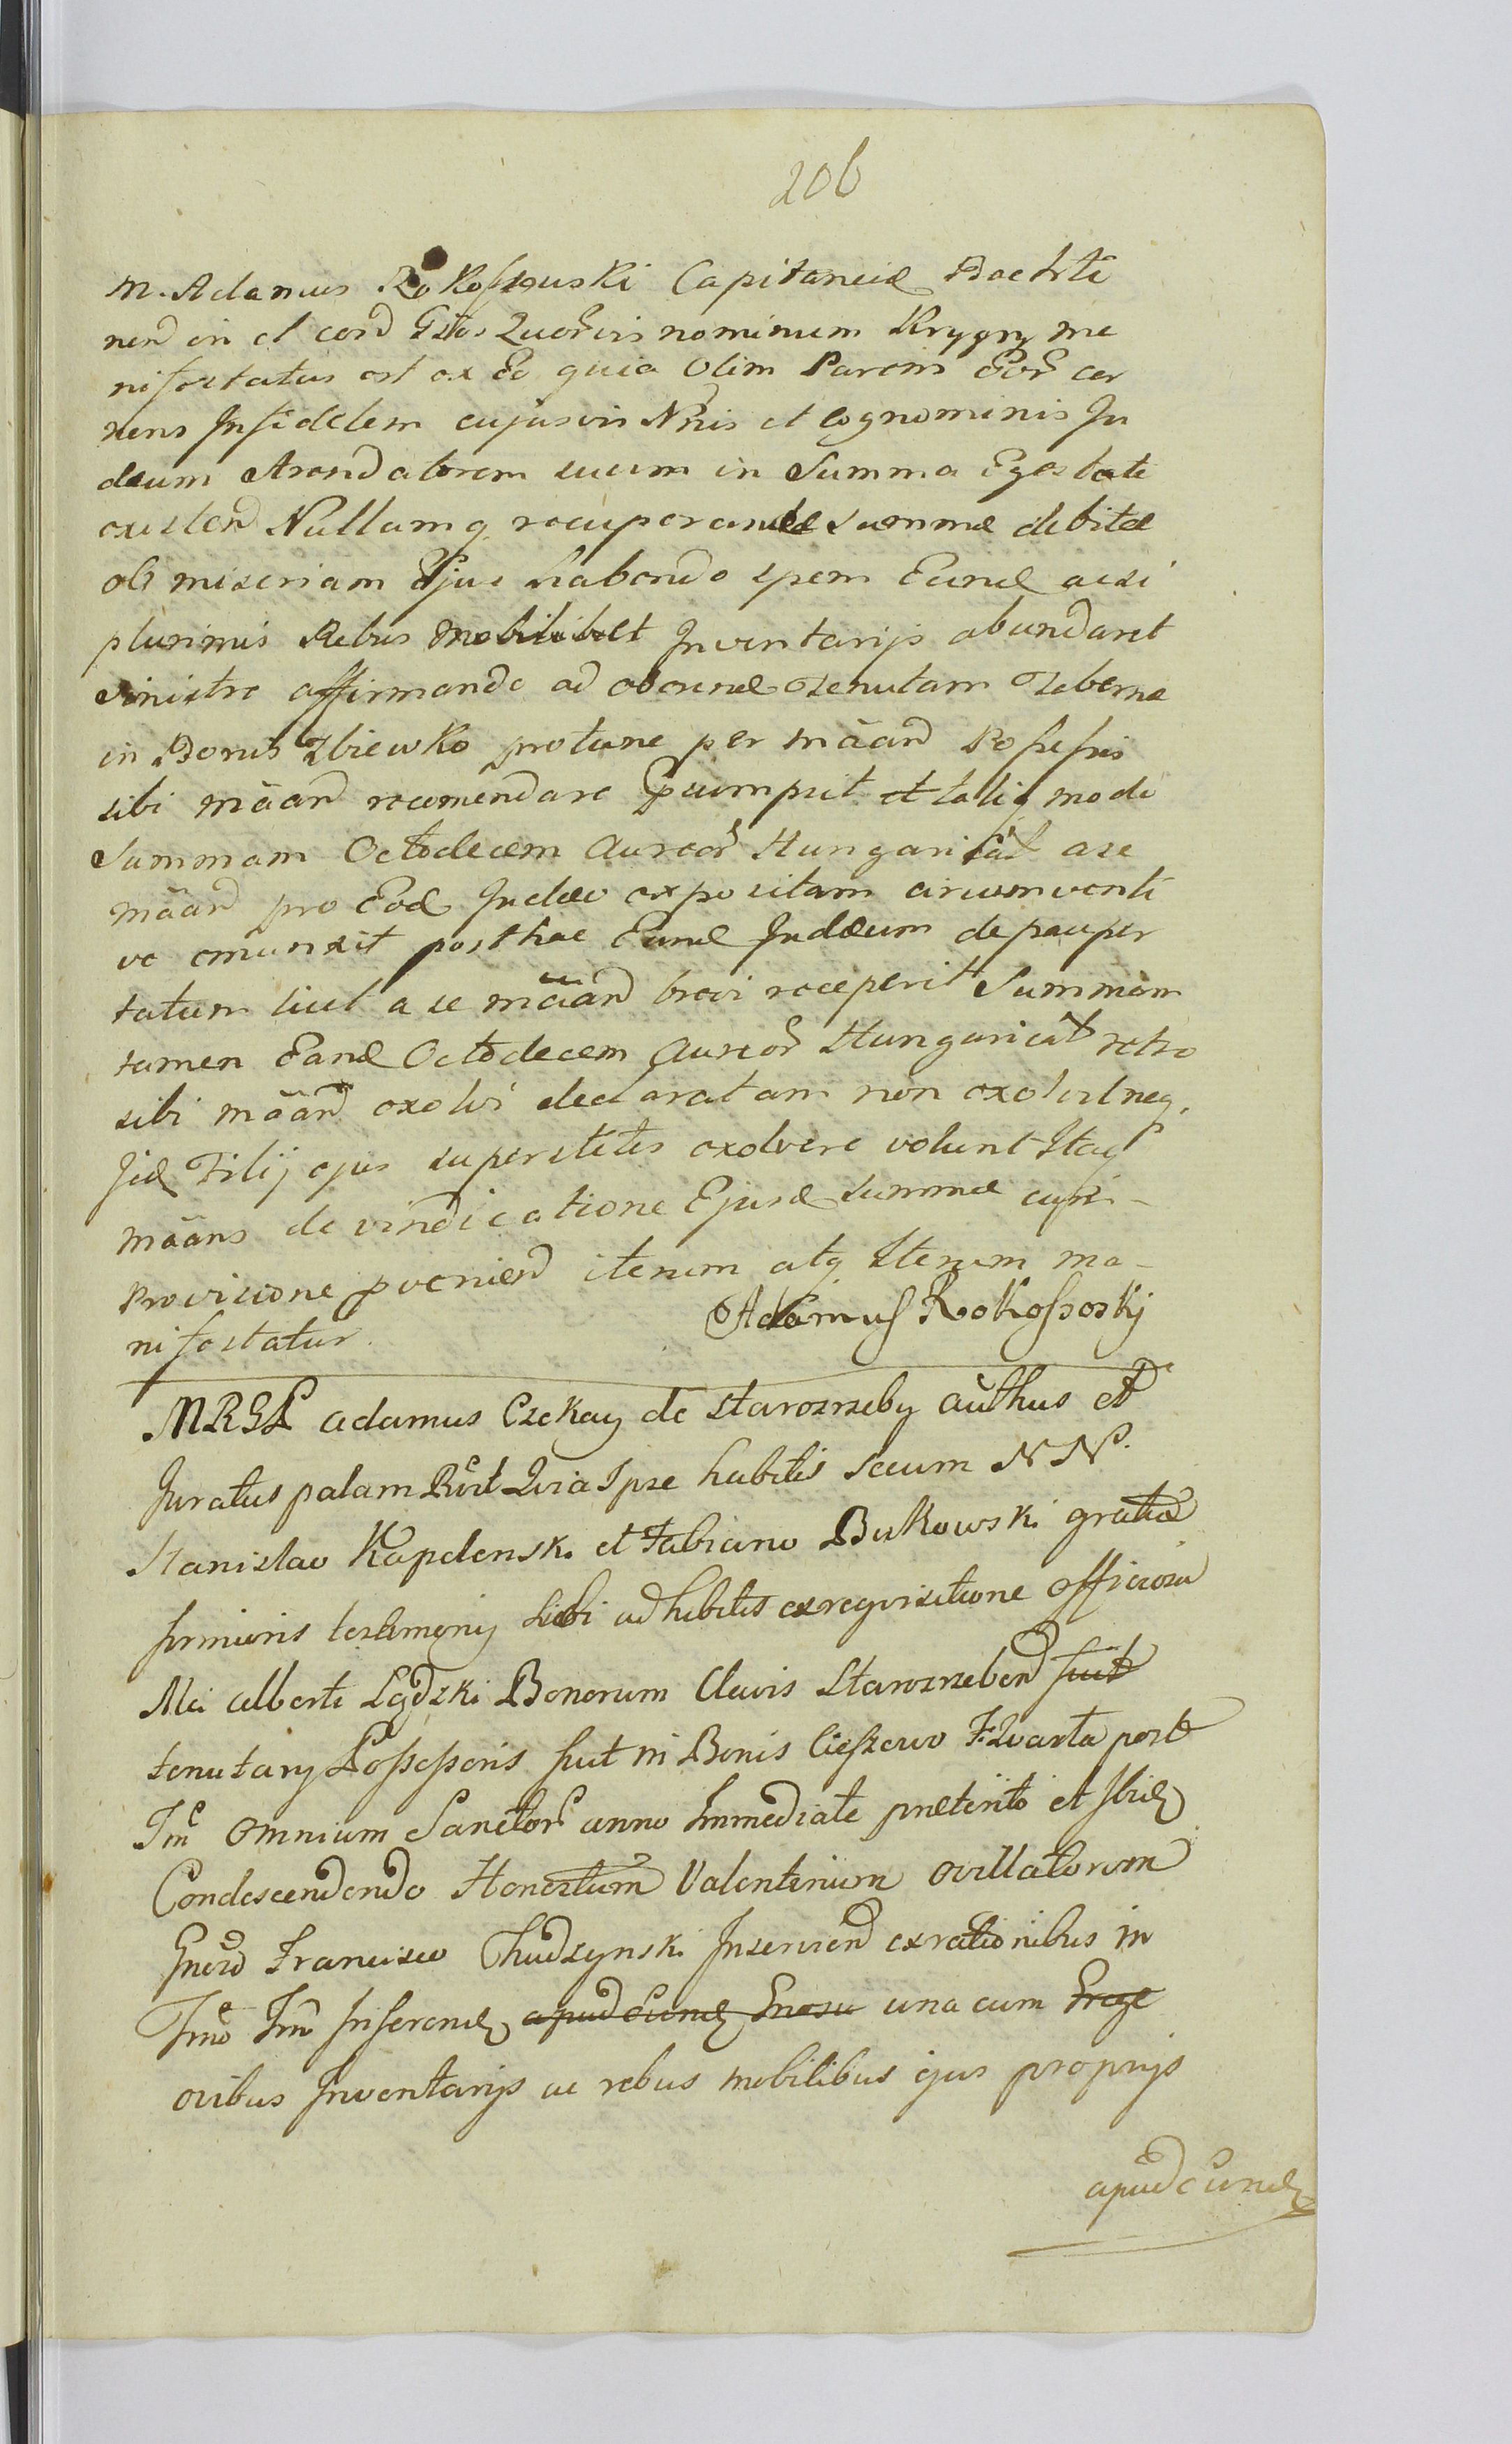 206
M. Adamus Rokossouski Capitaneid Bachti
nen in et cord Gtos Quorvis nominum Krygry me
nifestatus est ex Eo quia Olim Parens Eor cer
nens Infidelem cujusvis Nnis et Cognominis Ju
deum Arendatorem suum in Summa Egestate
existen Nullamq recuperandæ summæ debitæ
ob miseriam Ejus habendo spem Eund acsi
plurimis Rebus Mobilib et Inventarijs abundaret
sinistre affirmando ad obeund Tenutam Tabernæ
in Bonis Zbiewko protunc per mãan Possessis
sibi mãan recomendare Psumpsit et taliq modo
Summam Octodecem Aureor Hungarical a se
mãan pro Eod Judeo expositam circumventi
ve emunxit post hac Eund Judæum depauper
tatum licet a se mãan brevi receperit Summam
tamen Eand Octodecem Aureor Hungarical retro
sibi mãan exolvi declaratam non exolvit neq
Jid Filij ejus superstites exolvere volunt Itaq
mãans de vindicatione Ejusd summæ cum
Provisione pvenien iterum atq Iterum ma-
nifestatur. Adamus Rokossoskj
MRGL adamus Czekay de Starozreby authus et
Juratus palam Rvit Quia Ipse habitis secum NN.
Stanislao Kapelenski et Fabiano Bukowski gratia
firmioris testimonij sibi adhibitis ex requisitione officiosa
Mci alberti Lgdzki Bonorum Clavis Starozreben fuit
tenutarij Possessoris fuit in Bonis Cieszewo F: Quarta post
Fm Omnium Sanctor anno Immediate præterito et Ibid
Condescendendo Honestum Valentinum ovillatorem
Gneso Francisco Chudzynski Inservien ex rationibus in
Fmo Fm Inserend apud Eund Gnosu una cum Grege
ovibus Inventarijs ac rebus mobilibus ejus proprijs
apud eund